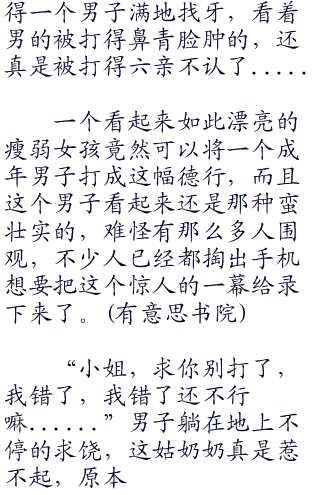 得一个男子满地找牙，看着
男的被打得鼻青脸肿的，还
真是被打得六亲不认了.....
一个看起来如此漂亮的
瘦弱女孩竟然可以将一个成
年男子打成这幅德行，而且
这个男子看起来还是那种蛮
壮实的，难怪有那么多人围
观，不少人已经都掏出手机
想要把这个惊人的一幕给录
下来了。(有意思书院)
“小姐，求你别打了，
我错了，我错了还不行
嘛......”男子躺在地上不
停的求饶，这姑奶奶真是惹
不起，原本